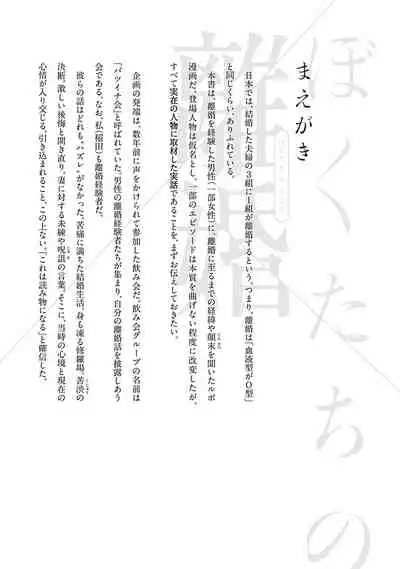 ぼくたちの
離婚
まえがき
日本では、結婚した夫婦の3組に1組が離婚するという。つまり、離婚は「血液型がO型」
と同じくらい、ありふれている。
本書は、離婚を経験した男性(一部女性)に、離婚に至るまでの経緯や顛末を聞いたルポ
漫画だ。登場人物は仮名とし、一部のエピソードは本質を曲げない程度に改変したが、
すべて実在の人物に取材した実話であることを、まずお伝えしておきたい。
企画の発端は、数年前に声をかけられて参加した飲み会だ。飲み会グループの名前は
「バツイチ会」と呼ばれていた。男性の離婚経験者たちが集まり、自分の離婚話を披露しあう
会である。なお、私(稲田)も離婚経験者だ。
彼らの話はどれも〝ハズレ〟がなかった。苦痛に満ちた結婚生活。身も凍る修羅場。苦渋の
決断。激しい後悔と開き直り。妻に対する未練や呪詛の言葉。そこに、当時の心境と現在の
心情が入り交じる。引き込まれること、この上ない。「これは読み物になる」と確信した。